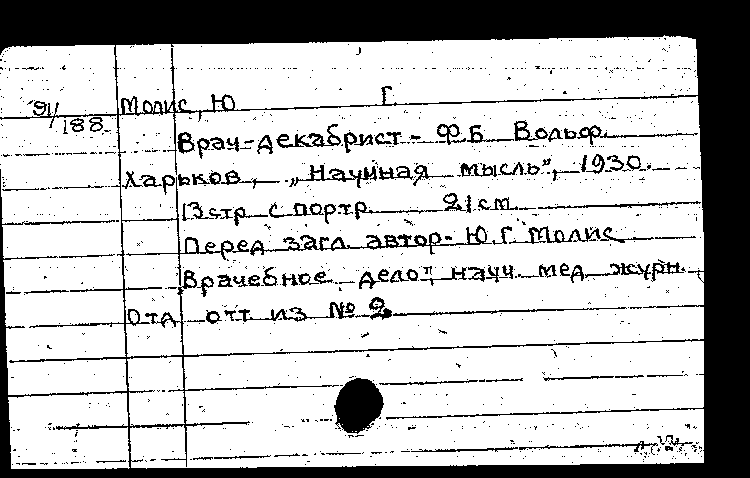 91/188 Молис, Ю Г.
Врач-декабрист - Ф.Б Вольф.
Харьков, „Научная мысль", 1930.
13 стр с портр. 21 см
Перед загл. автор- Ю.Г. Молис
Врачебное дело", науч. мед журн.
Отд отт из № 2